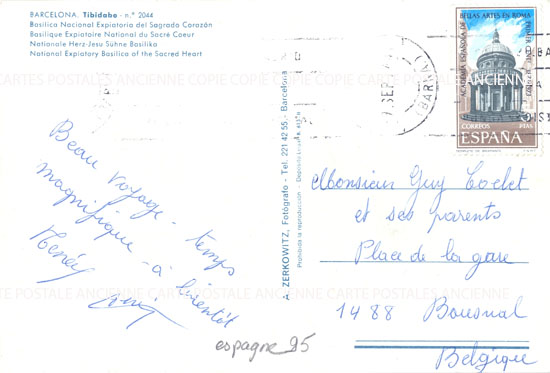 BARCELONA. Tibidabo - n.º 2044
Basílica Nacional Expiatoria del Sagrado Corazón
Basilique Expiatoire National du Sacré Coeur
Nationale Herz-Jesu Sühne Basilika
National Expiatory Basilica of the Sacred Heart
CARTE POSTALES ANCIENNE COPIE CARTE POSTALES ANCIENNE
Beau voyage - temps
magnifique - à bientôt
A. ZERKOWITZ, Fotógrafo - Tel. 221 42 55 - Barcelona
Prohibida la reproducción - Depósito
ACADEMIA ESPAÑOLA DE BELLAS ARTES EN ROMA
CORREOS PTAS
ESPAÑA
SEP
(BARNA)
Monsieur Guy
et ses parents
Place de la gare
1488 Bousval
Belgique
espagne 95